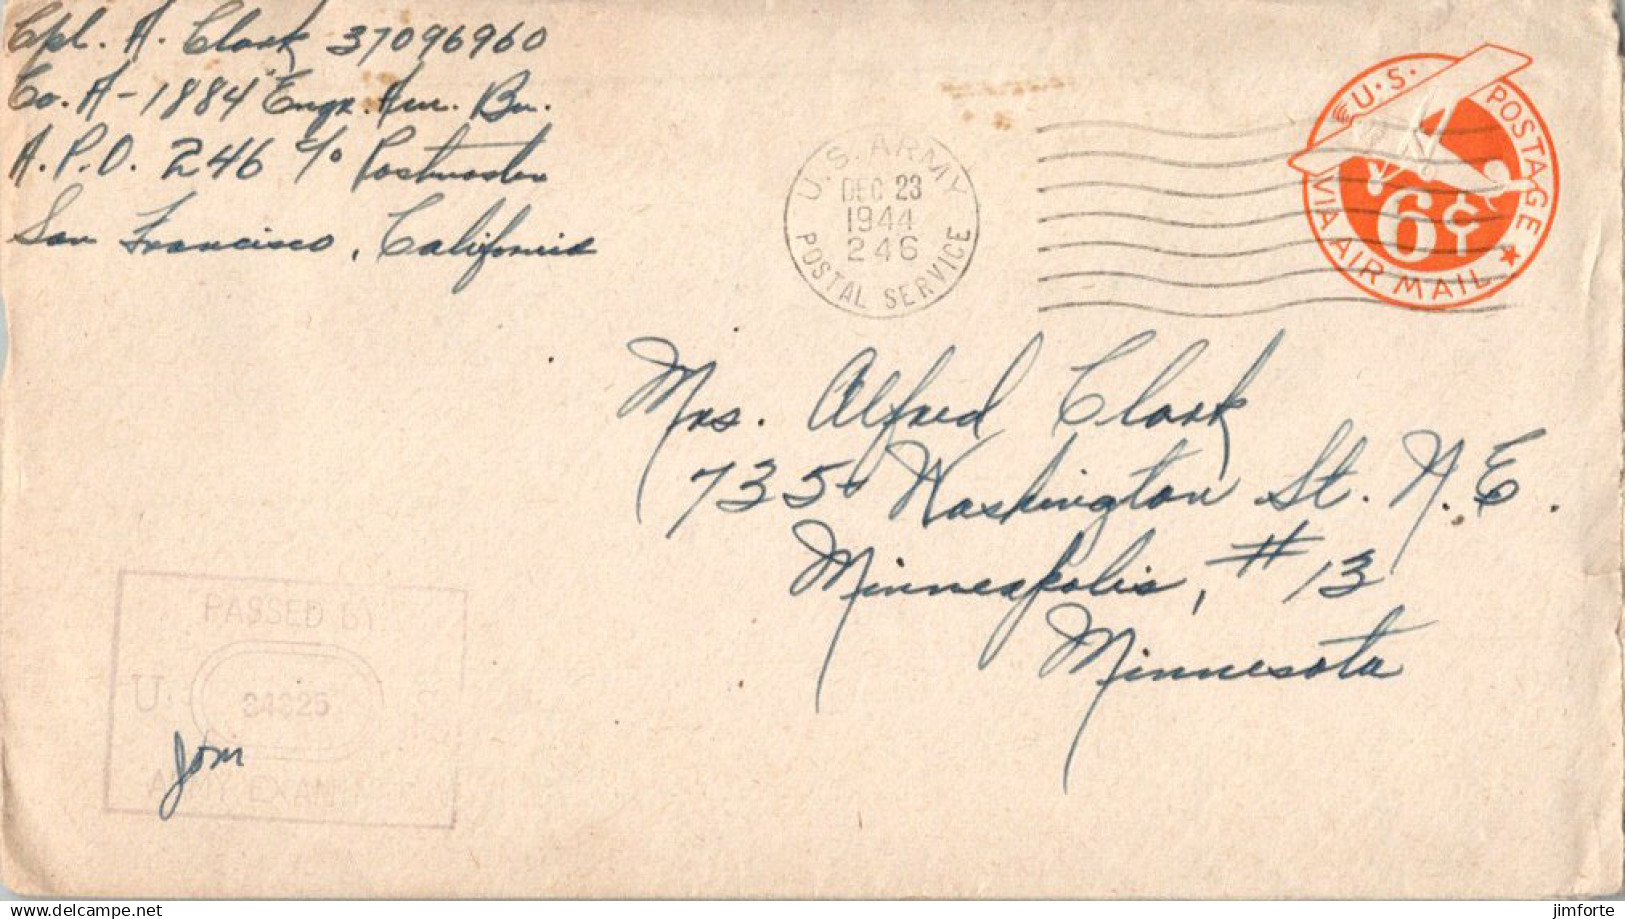 Cpl. A. Clark 37096960
Co. A - 1884 Engr. Avn. Bn.
A.P.O. 246 c/o Postmaster
San Francisco, California
U.S. ARMY
DEC 23
1944
246
POSTAL SERVICE
U.S. POSTAGE
6¢
VIA AIR MAIL
Mrs. Alfred Clark
735 Washington St. N.E.
Minneapolis, #13
Minnesota
PASSED BY
U. S.
ARMY EXAMINER
delcampe.net
jimforte